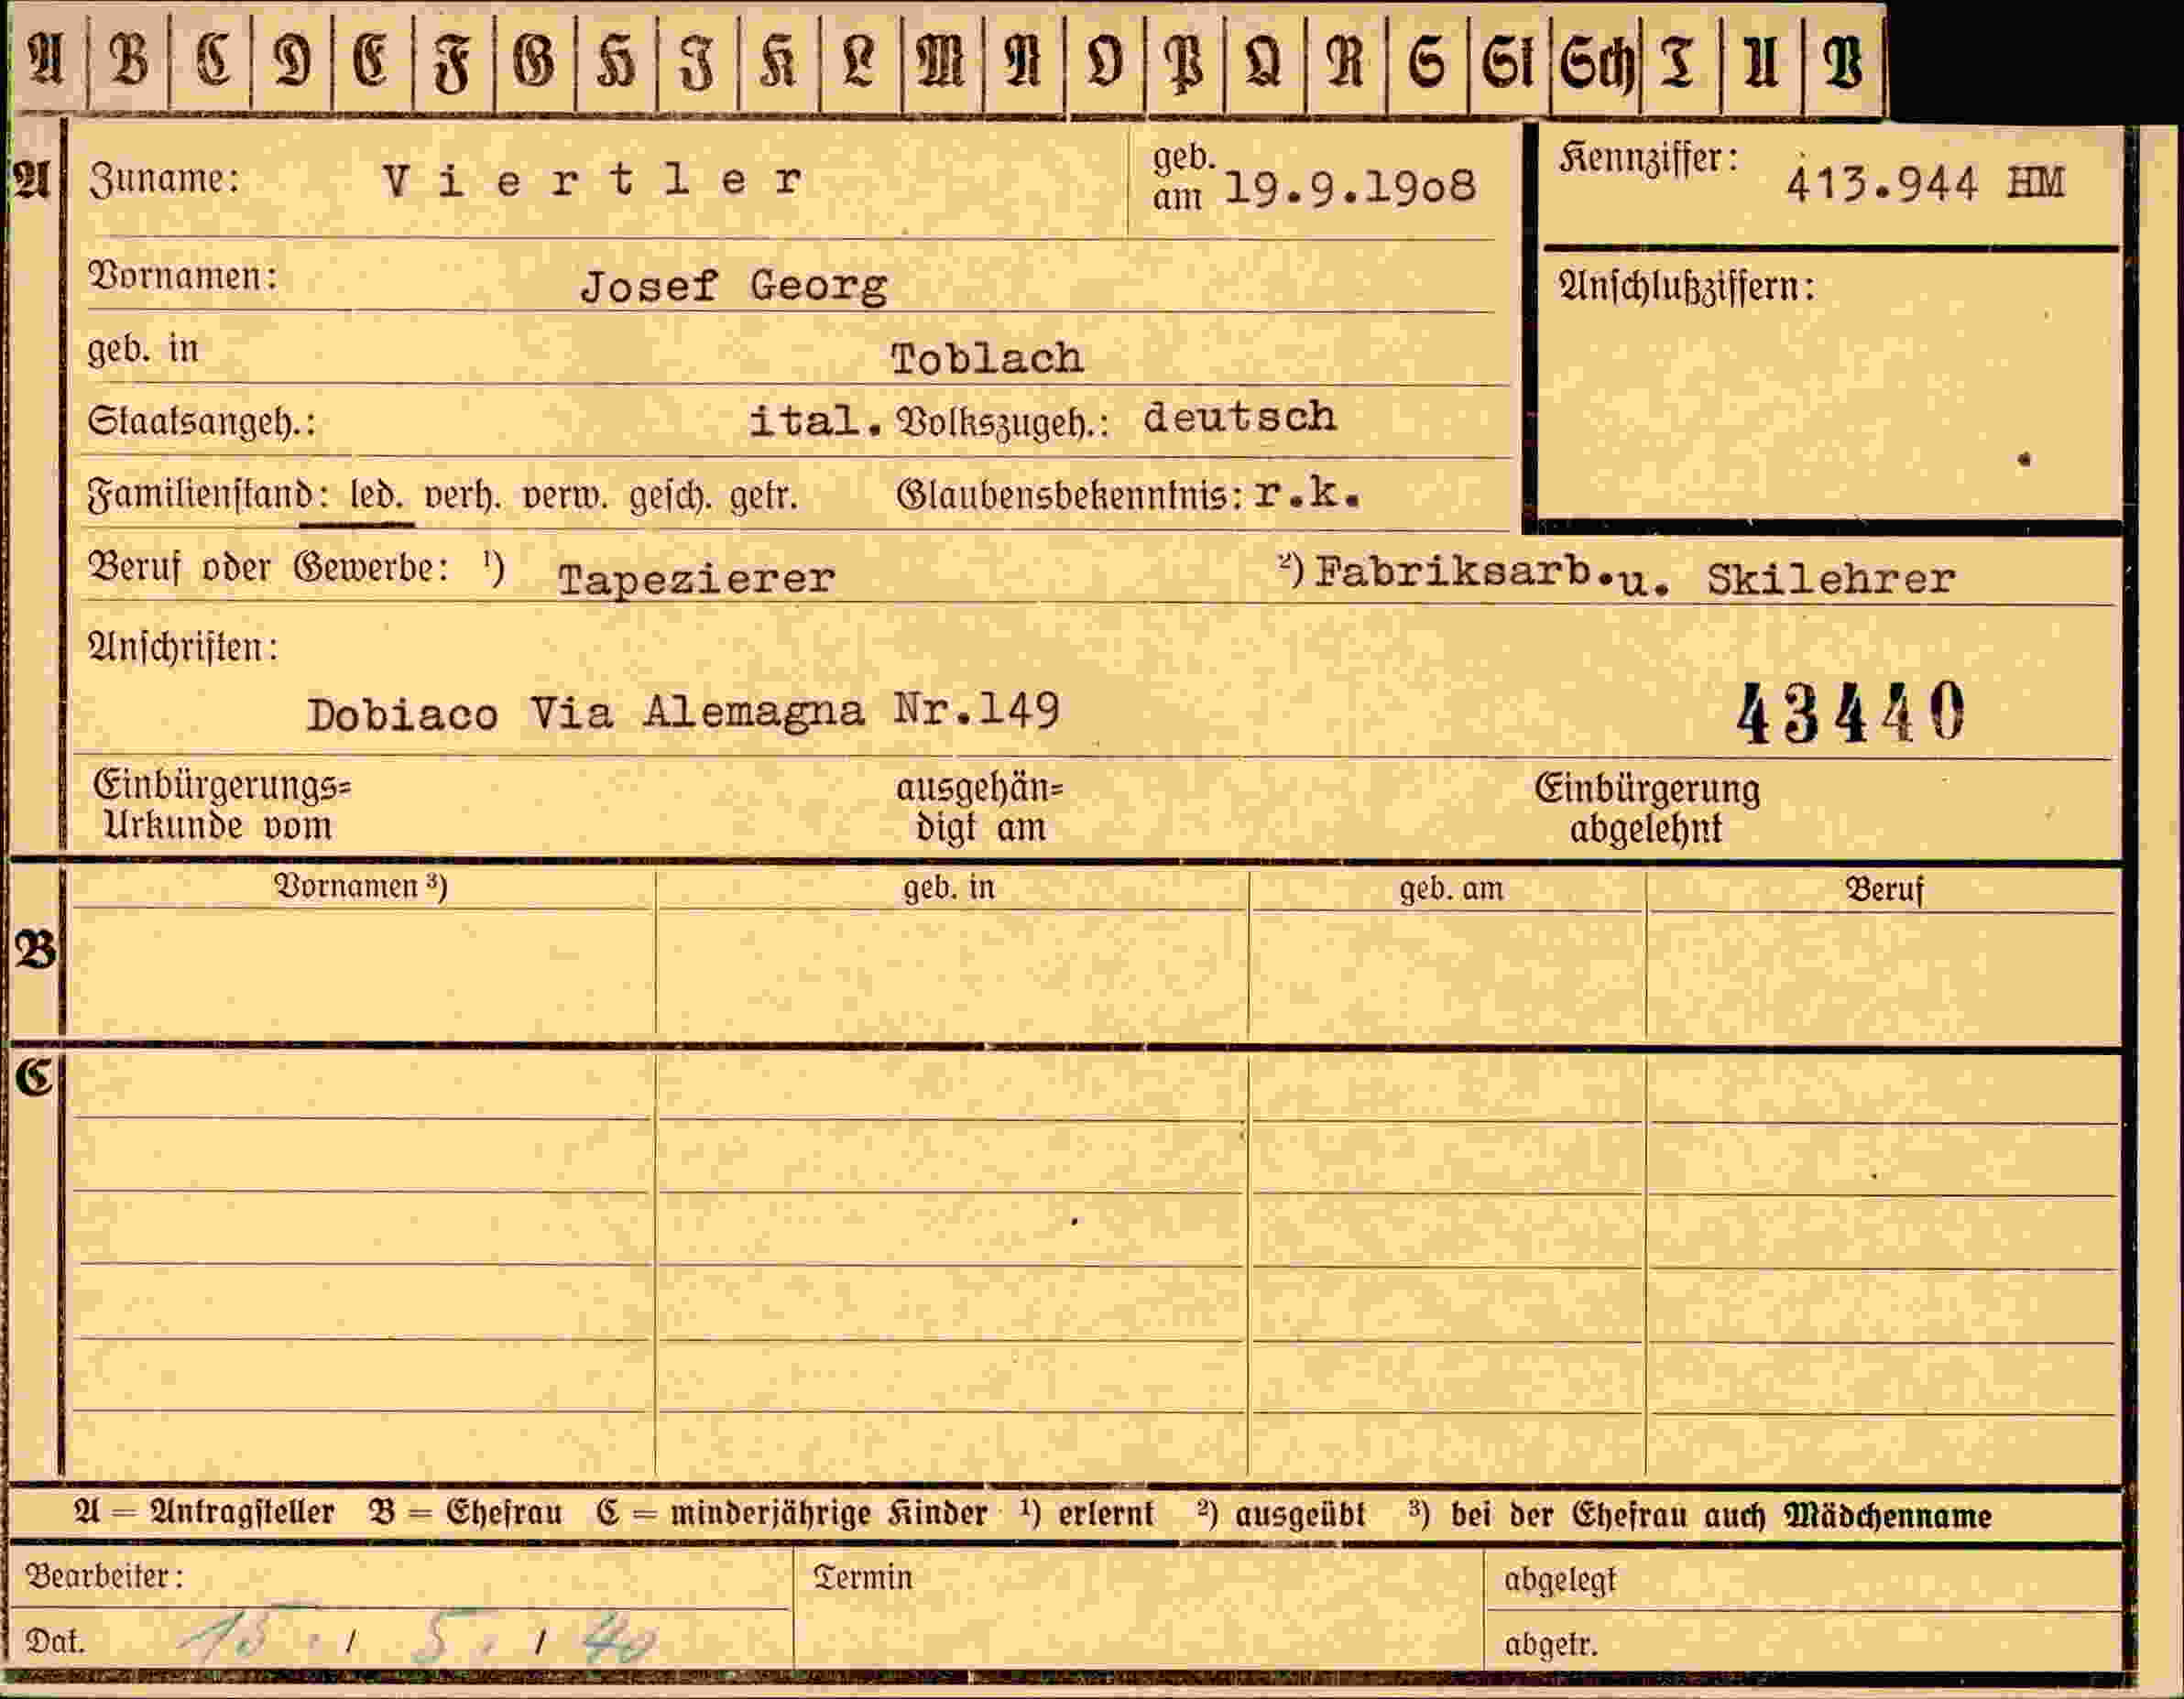 A B C D E F G H J K L M N O P Q R S St Sch T U V
A Zuname: Viertler geb. am 19.9.19o8 Kennziffer: 413.944 HM
Vornamen: Josef Georg Anschlußziffern:
geb. in Toblach
Staatsangeh.: ital. Volkszugeh.: deutsch
Familienstand: led. verh. verw. gesch. getr. Glaubensbekenntnis: r.k.
Beruf oder Gewerbe: ¹) Tapezierer ²) Fabriksarb.u. Skilehrer
Anschriften:
Dobiaco Via Alemagna Nr.149 43440
Einbürgerungs= ausgehän= Einbürgerung
Urkunde vom digt am abgelehnt
Vornamen ³) geb. in geb. am Beruf
B
C
A = Antragsteller B = Ehefrau C = minderjährige Kinder ¹) erlernt ²) ausgeübt ³) bei der Ehefrau auch Mädchenname
Bearbeiter: Termin abgelegt
Dat. 15. / 5. / 40 abgetr.